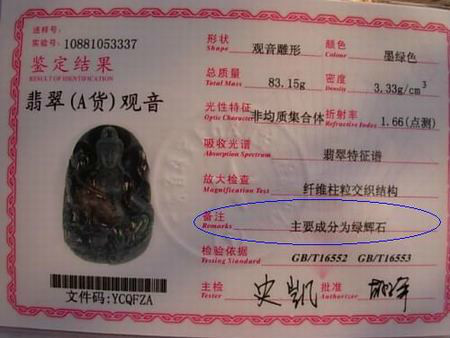 送样号:
实验号: 10881053337
鉴定结果
RESULT OF IDENTIFICATION
翡翠(A货)观音
文件码:YCQFZA
形状 观音雕形 颜色 墨绿色
Shape Colour
总质量 83.15g 密度 3.33g/cm³
Total Mass Density
光性特征 非均质集合体 折射率 1.66(点测)
Optic Character Refractive Index
吸收光谱 翡翠特征谱
Absorption Spectrum
放大检查 纤维柱粒交织结构
Magnification Test
备注 主要成分为绿辉石
Remarks
检验依据 GB/T16552 GB/T16553
Testing Standard
主检 史凯 批准
Tester Authorizer